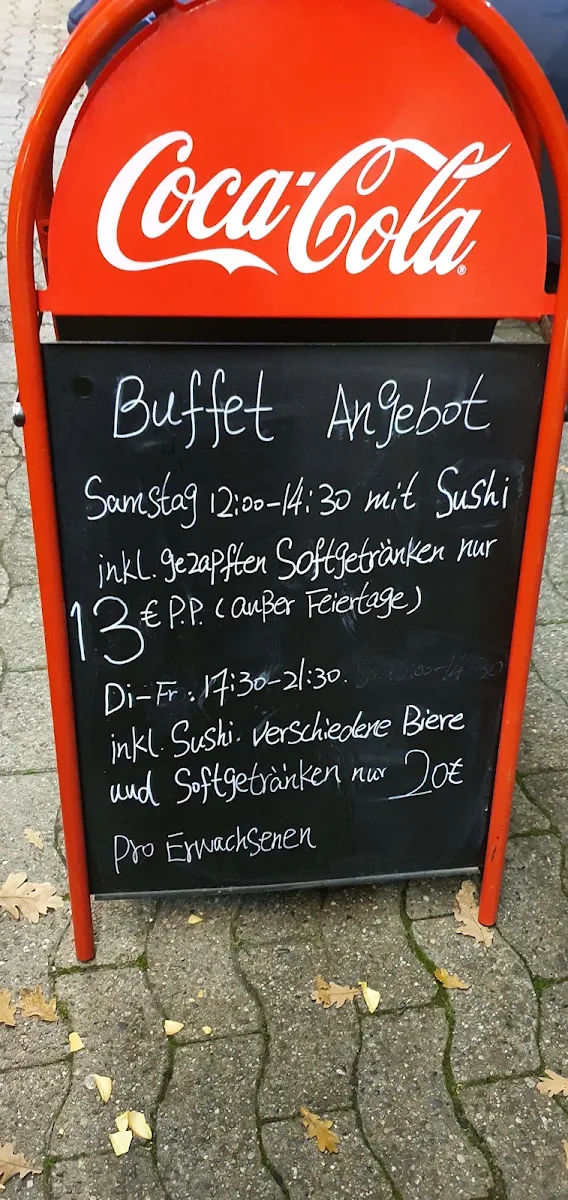 Coca-Cola®
Buffet Angebot
Samstag 12:00-14:30 mit Sushi
inkl. gezapften Softgetränken nur
13 € P.P. (außer Feiertage)
Di-Fr. 17:30-21:30.
inkl. Sushi. verschiedene Biere
und Softgetränken nur 20€
pro Erwachsenen